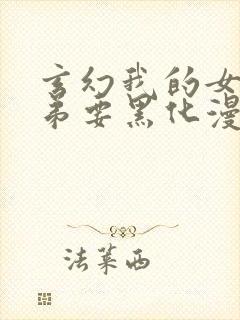 玄幻我的女
弟要黑化漫
法莱西